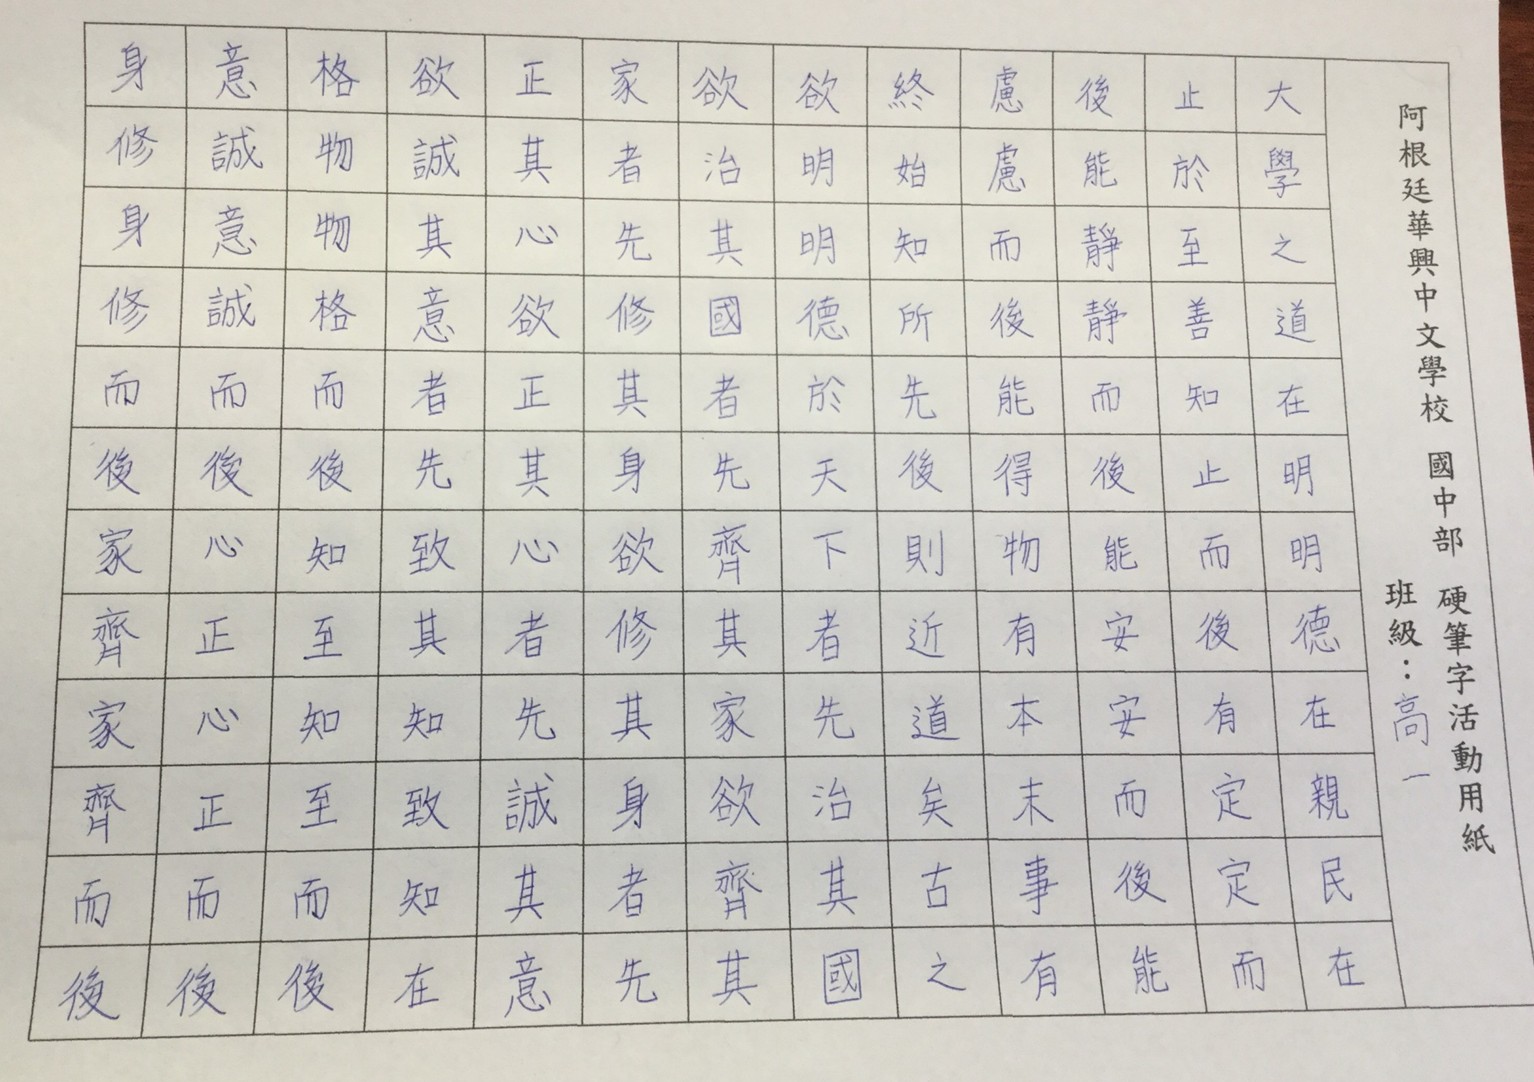 阿根廷華興中文學校 國中部 硬筆字活動用紙
班級：高一
大學之道在明明德在親民在
止於至善知止而后有定定而
後能靜靜而後能安安而後能
慮慮而後能得物有本末事有
終始知所先後則近道矣古之
欲明明德於天下者先治其國
欲治其國者先齊其家欲齊其
家者先修其身欲修其身者先
正其心欲正其心者先誠其意
欲誠其意者先致其知致知在
格物物格而後知至知至而後
意誠意誠而後心正心正而後
身修身修而後家齊家齊而後